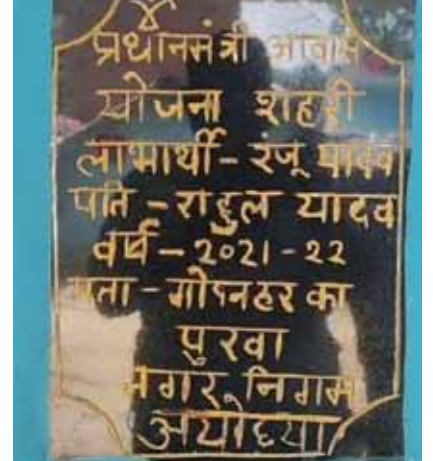 प्रधानमंत्री आवास
योजना शहरी
लाभार्थी- रंजू यादव
पति - राहुल यादव
वर्ष - 2021-22
पता - गोपनहर का
पुरवा
नगर निगम
अयोध्या